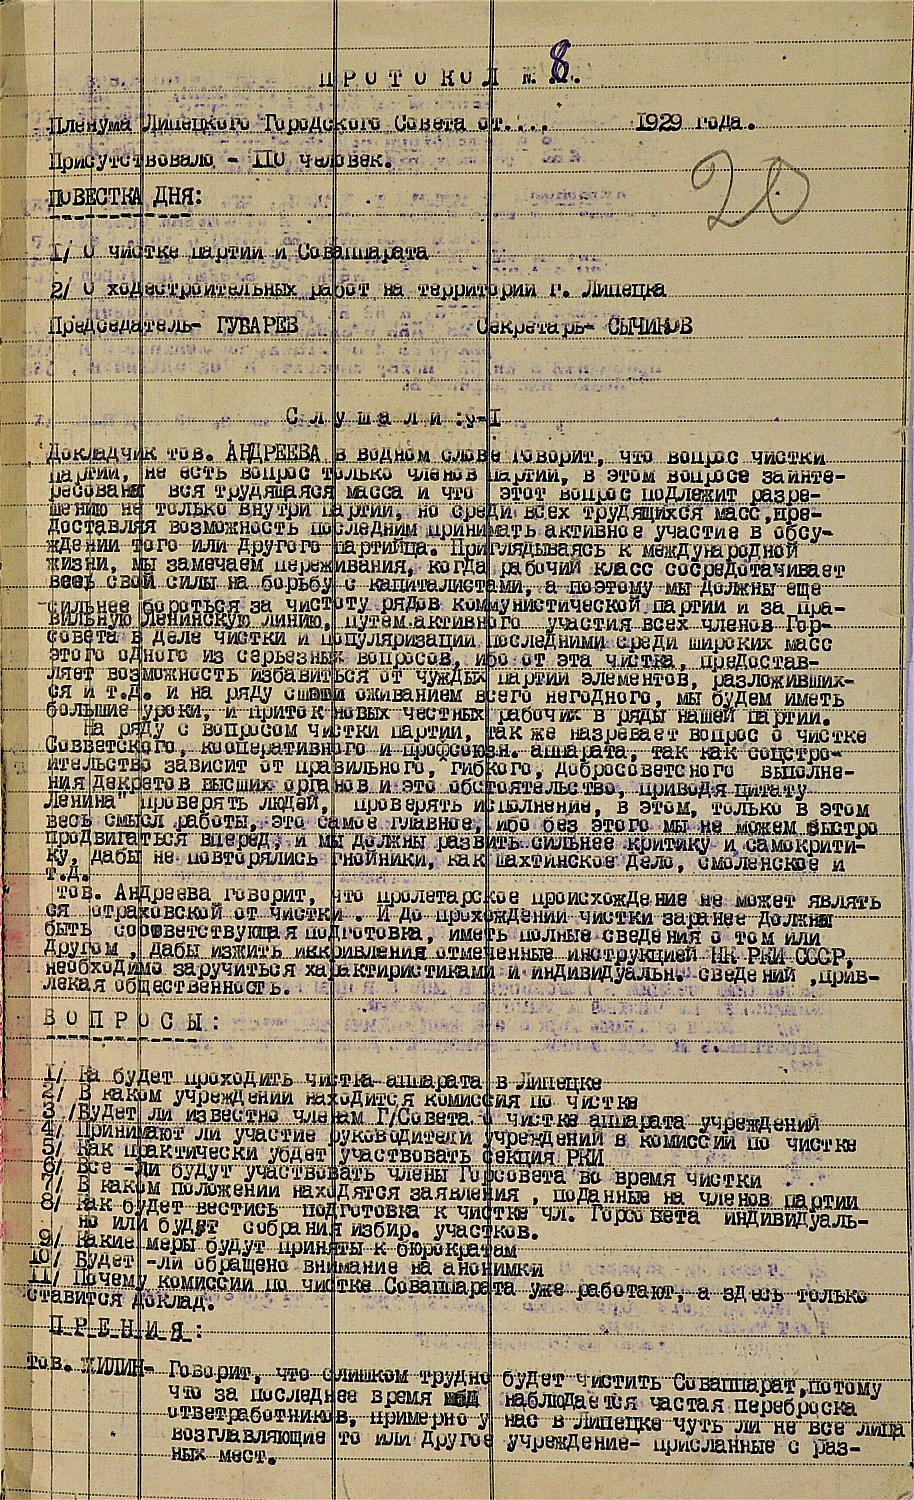 ПРОТОКОЛ №.8.
Пленума Липецкого Городского Совета от.... 1929 года.
Присутствовало - 110 человек.
20
ПОВЕСТКА ДНЯ:
1/ О чистке партии и Соваппарата
2/ О ходестроительных работ на территории г. Липецка
Председатель- ГУБАРЕВ Секретарь- СЫЧИКОВ
Слушали:у-I
Докладчик тов. АНДРЕЕВА в водном слове говорит, что вопрос чистки
партии, не есть вопрос только членов партии, в этом вопросе заинте-
ресована вся трудящаяся масса и что этот вопрос подлежит разре-
шению не только внутри партии, но среди всех трудящихся масс,пре-
доставляя возможность последним принимать активное участие в обсу-
ждении того или другого партийца. Приглядываясь к международной
жизни, мы замечаем переживания, когда рабочий класс сосредотачивает
всеь свои силы на борьбу с капиталистами, а поэтому мы должны еще
сильнее бороться за чистоту рядов коммунистической партии и за пра-
вильную Ленинскую линию, путем.активного участия всех членов Гор-
совета в деле чистки и популяризации последними среди широких масс
этого одного из серьезных вопросов, ибо от эта чистка, предостав-
ляет возможность избавиться от чуждых партии элементов, разложивших-
ся и т.д. и на ряду с оживанием всего негодного, мы будем иметь
большие уроки, и приток новых честных рабочих в ряды нашей партии.
На ряду с вопросом чистки партии, так же назревает вопрос о чистке
Совветского, кооперативного и профсоюзн. аппарата, так как соцстро-
ительство зависит от правильного, гибкого, добросоветсного выполне-
ния декретов высших органов и это обстоятельство, приводя цитату
Ленина" проверять людей, проверять исполнение, в этом, только в этом
весь смысл работы, это самое главное, ибо без этого мы не можем быстро
продвигаться вперед, и мы должны развить сильнее критику и самокрити-
ку, дабы не повторялись гнойники, как шахтинское дело, смоленское и
т.д.
тов. Андреева говорит, что пролетарское происхождение не может являть
ся отраховской от чистки . И до прохождении чистки заранее должны
быть соответствующая подготовка, иметь полные сведения о том или
другом , дабы изжить искривления отмеченные инструкцией НК РКИ СССР,
необходимо заручиться характиристиками и индивидуальн. сведений ,прив-
лекая общественность.
ВОПРОСЫ:
1/ Ка будет проходить чистка аппарата в Липецке
2/ В каком учреждении находится комиссия по чистке
3 /Будет ли известно членам Г/Совета о чистке аппарата учреждений
4/ Принимают ли участие руководители учреждений в комиссии по чистке
5/ Как практически убдет участвовать секция РКИ
6/ Все -ли будут участвовать члены Горсовета во время чистки
7/ В каком положении находятся заявления , поданные на членов партии
8/ Как будет вестись подготовка к чистке чл. Горсовета индивидуаль-
но или будут собрания избир. участков.
9/ Какие меры будут приняты к бюрократам
10/ Будет -ли обращено внимание на анонимки
11/ Почему комиссии по чистке Соваппарата уже работают, а здесь только
ставится доклад.
ПРЕНИЯ:
тов. ЖИЛИН- Говорит, что слишком трудно будет чистить Соваппарат,потому
что за последнее время наблюдается частая переброска
ответработников, примерно у нас в Липецке чуть ли не все лица
возглавляющие то или другое учреждение- присланные с раз-
ных мест.